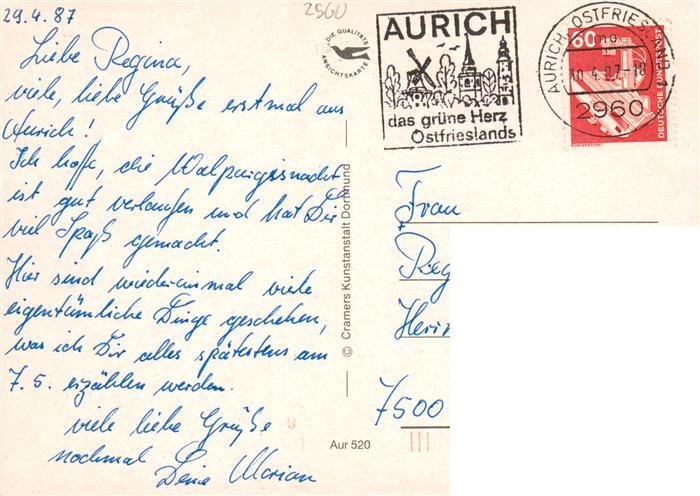 29.4.87
2960
Liebe Regina,
viele, liebe Grüße erstmal aus
Aurich!
Ich hoffe, die Walpurgisnacht
ist gut verlaufen und hat Dir
viel Spaß gemacht.
Hier sind wieder einmal viele
eigentümliche Dinge geschehen,
was ich Dir alles spätestens am
7.5. erzählen werden.
viele liebe Grüße
nochmal Deine Marian
DIE QUALITÄTS
ANSICHTSKARTE
© Cramers Kunstanstalt Dortmund
Aur 520
AURICH
das grüne Herz
Ostfrieslands
AURICH, OSTFRIESLAND
mo
30.4.87-18
2960
60
DEUTSCHE BUNDESPOST
Frau
Reg
Hein
7500